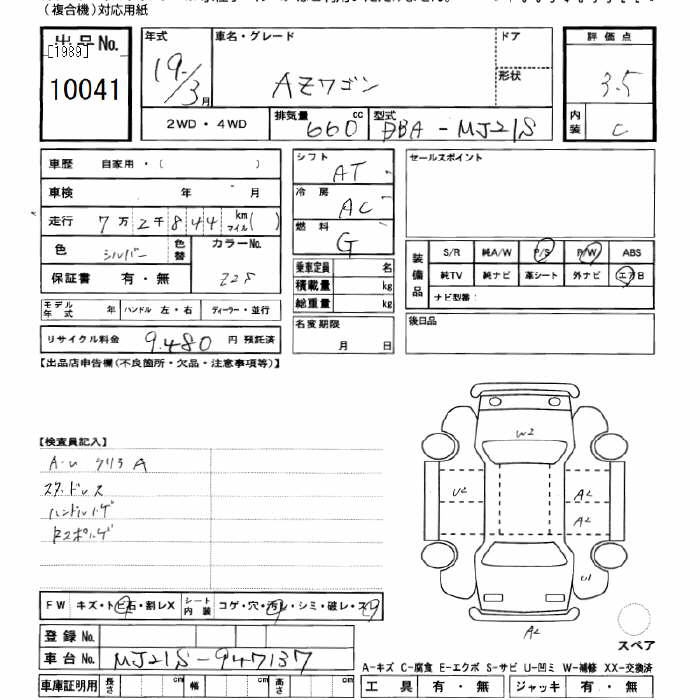 (複合機)対応用紙
出品No.
[1989]
10041
年式 車名・グレード ドア 評価点
19/3月 AZワゴン 形状 3.5
2WD・4WD 排気量 660 cc 型式 DBA-MJ21S 内装 C
車歴 自家用・( )
シフト AT
セールスポイント
車検 年 月
冷房 AC
走行 7万2千844 km マイル( )
燃料 G
色 シルバー 色替 カラーNo.
装備品 S/R 純A/W P/S P/W ABS
保証書 有・無
乗車定員 名
純TV 純ナビ 革シート 外ナビ エアB
積載量 kg
ナビ型番:
モデル年式 年 ハンドル 左・右 ディーラー・並行
総重量 kg
リサイクル料金 9.480 円 預託済
名変期限 月 日
後日品
【出品店申告欄(不良箇所・欠品・注意事項等)】
【検査員記入】
W2
U2 A2
A2
U1
A2
スタッドレス
ハンドルハゲ
FW キズ・トビ石・割レX シート内装 コゲ・穴・汚レ・シミ・破レ・スレ
登録No.
スペア
車台No. MJ21S-947137
A-キズ C-腐食 E-エクボ S-サビ U-凹ミ W-補修 XX-交換済
車庫証明用 長さ cm 幅 cm 高さ cm 工具 有・無 ジャッキ 有・無